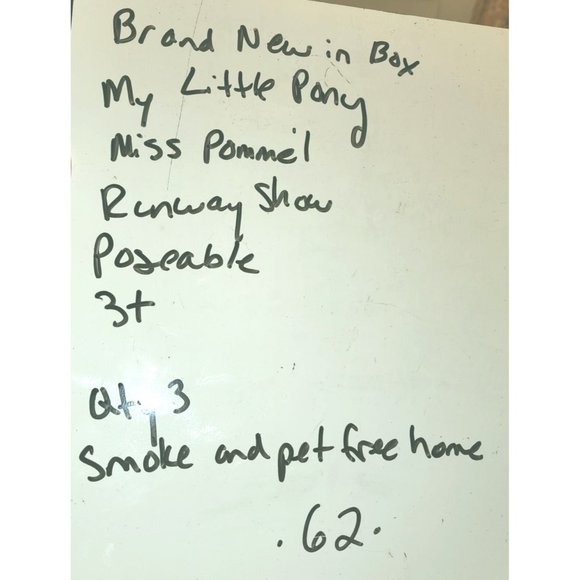 Brand New in Box
My Little Pony
Miss Pommel
Runway Show
Poseable
3+
Qty 3
Smoke and pet free home
.62.